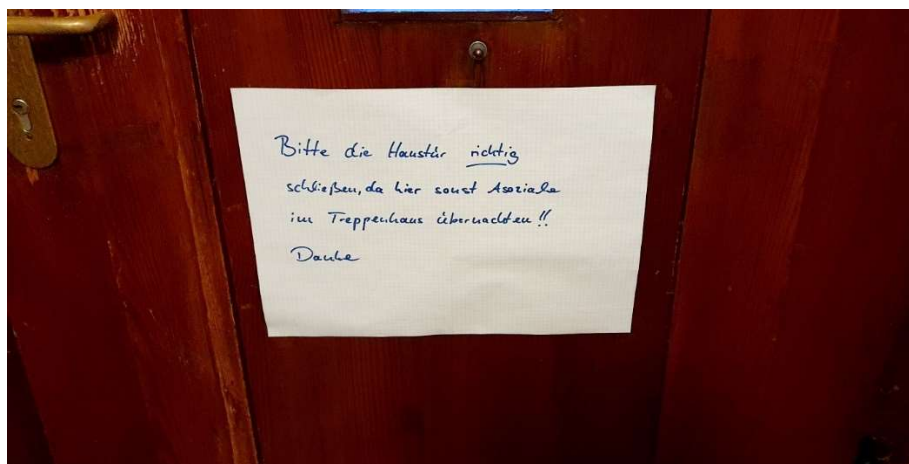 Bitte die Haustür richtig
schließen, da hier sonst Asoziale
im Treppenhaus übernachten!!
Danke